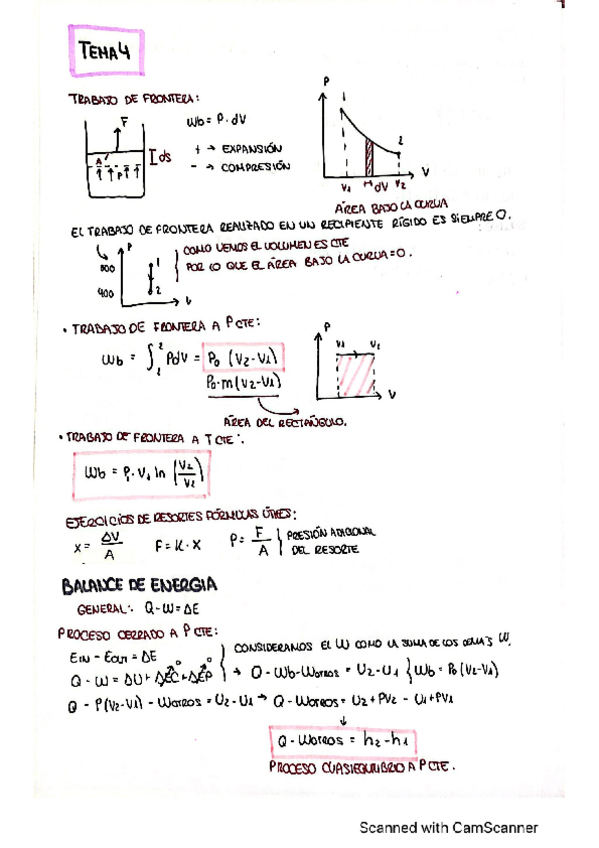 TEMA 4
TRABAJO DE FRONTERA:
Wb = P·dV
+ → EXPANSIÓN
- → COMPRESIÓN
F
ds
A
P
P
1
2
V
V1 dV V2
ÁREA BAJO LA CURVA
EL TRABAJO DE FRONTERA REALIZADO EN UN RECIPIENTE RÍGIDO ES SIEMPRE 0.
P
400
1
2
V
COMO VEMOS EL VOLUMEN ES CTE
POR LO QUE EL ÁREA BAJO LA CURVA = 0.
• TRABAJO DE FRONTERA A P CTE:
Wb = ∫₁² PdV = P0 (V2-V1)
P0·m(V2-V1)
P
V
ÁREA DEL RECTÁNGULO.
• TRABAJO DE FRONTERA A T CTE:
Wb = P1·V1 ln
EJERCICIOS DE RESORTES FÓRMULAS ÚTILES:
X = ΔV/A F = K·X P = F/A PRESIÓN ADICIONAL
DEL RESORTE
BALANCE DE ENERGIA
GENERAL: Q-W=ΔE
PROCESO CERRADO A P CTE:
CONSIDERAMOS EL W COMO LA SUMA DE LOS DEMÁS W.
Ein - Eout = ΔE
Q - W = ΔU + ΔEC + ΔEP → Q - Wb - Wotros = U2 - U1 } Wb = P0 (V2-V1)
Q - P(V2-V1) - Wotros = U2 - U1 → Q - Wotros = U2 + PV2 - U1+PV1
Q - Wotros = h2-h1
PROCESO CUASIEQUILIBRIO A P CTE.
Scanned with CamScanner